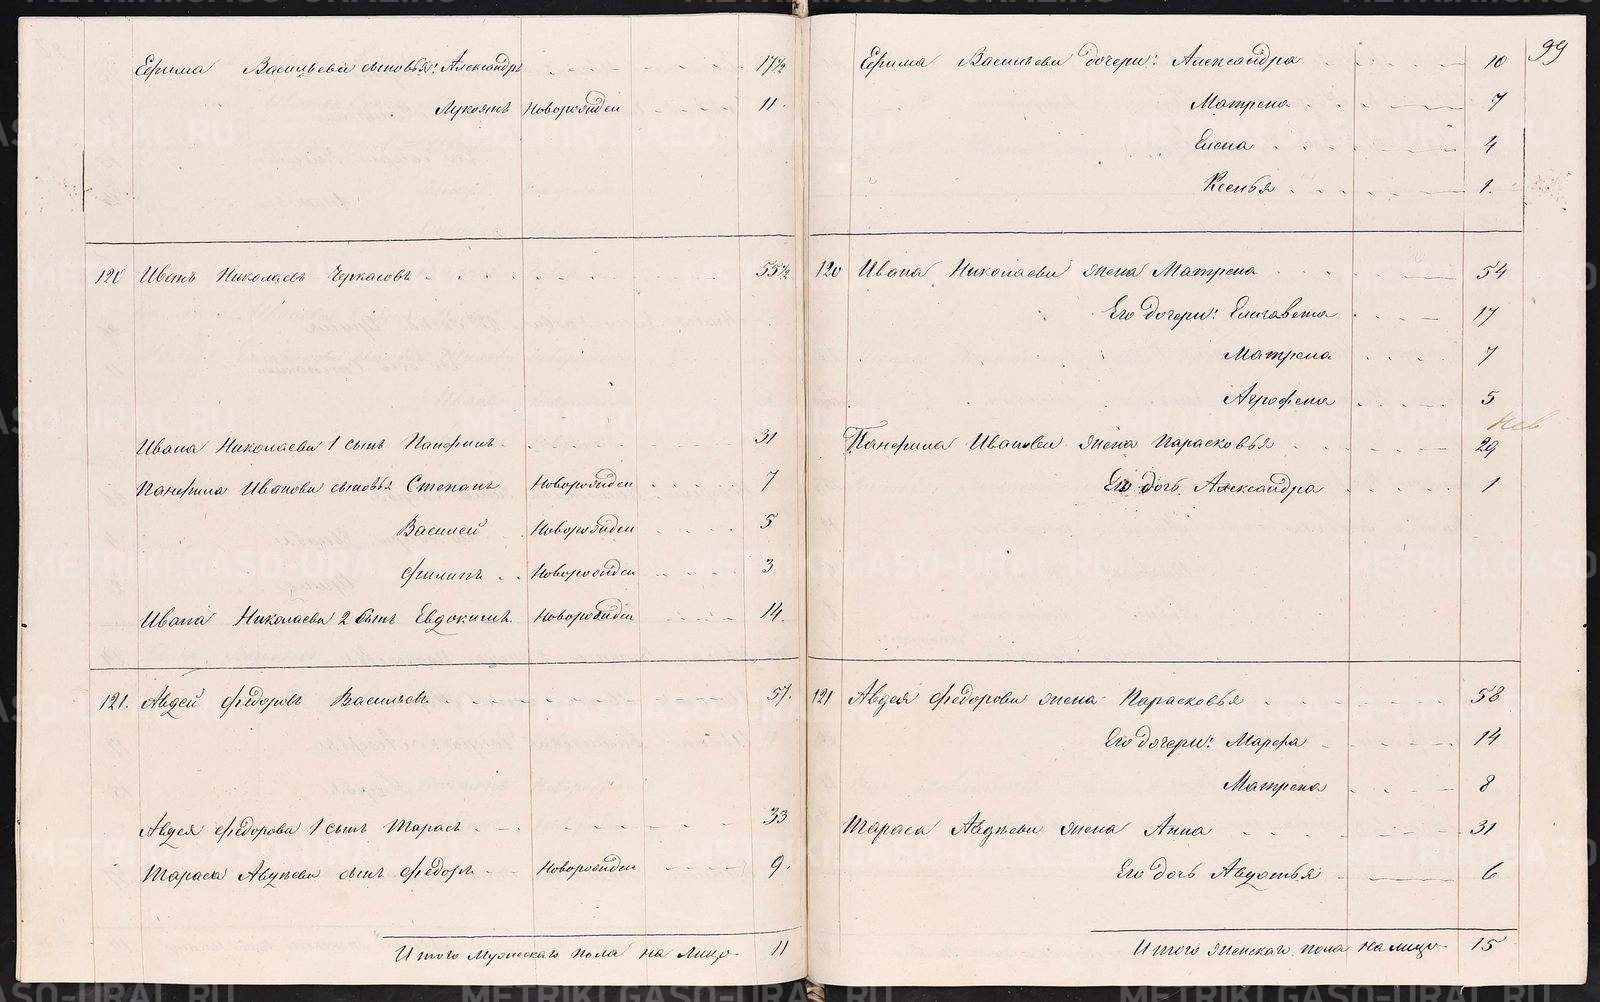 Ефима Васильева сыновья: Александръ 17 1/2
Лукоянъ Новорожден 11.
120 Иванъ Николаевъ Черкасовъ 55 1/2
Ивана Николаева 1 сынъ Панфилъ 31
Панфила Иванова сыновья Степанъ Новорожден 7
Василей Новорожден 5
Филипъ Новорожден 3
Ивана Николаева 2 сынъ Евдокимъ Новорожден 14.
121. Авдей Федоровъ Васильевъ 57.
Авдея Федорова 1 сынъ Тарасъ 33
Тараса Авдѣева сынъ Федоръ Новорожден 9.
Итого мужескаго пола на лицо 11
99
Ефима Васильева дочери: Александра 10
Матрена 7
Елена 4
Ксенья 1.
120 Ивана Николаева жена Матрена 54
Его дочери: Елизавета 17
Матрена 7
Агрофена 5
Панфила Иванова жена Парасковья 29
Его дочь Александра 1
121 Авдея Федорова жена Парасковья 58
Его дочери: Марфа 14
Матрена 8
Тараса Авдѣева жена Анна 31
Его дочь Авдотья 6
Итого женскаго пола на лицо 15
METRIKI.GASO-URAL.RU